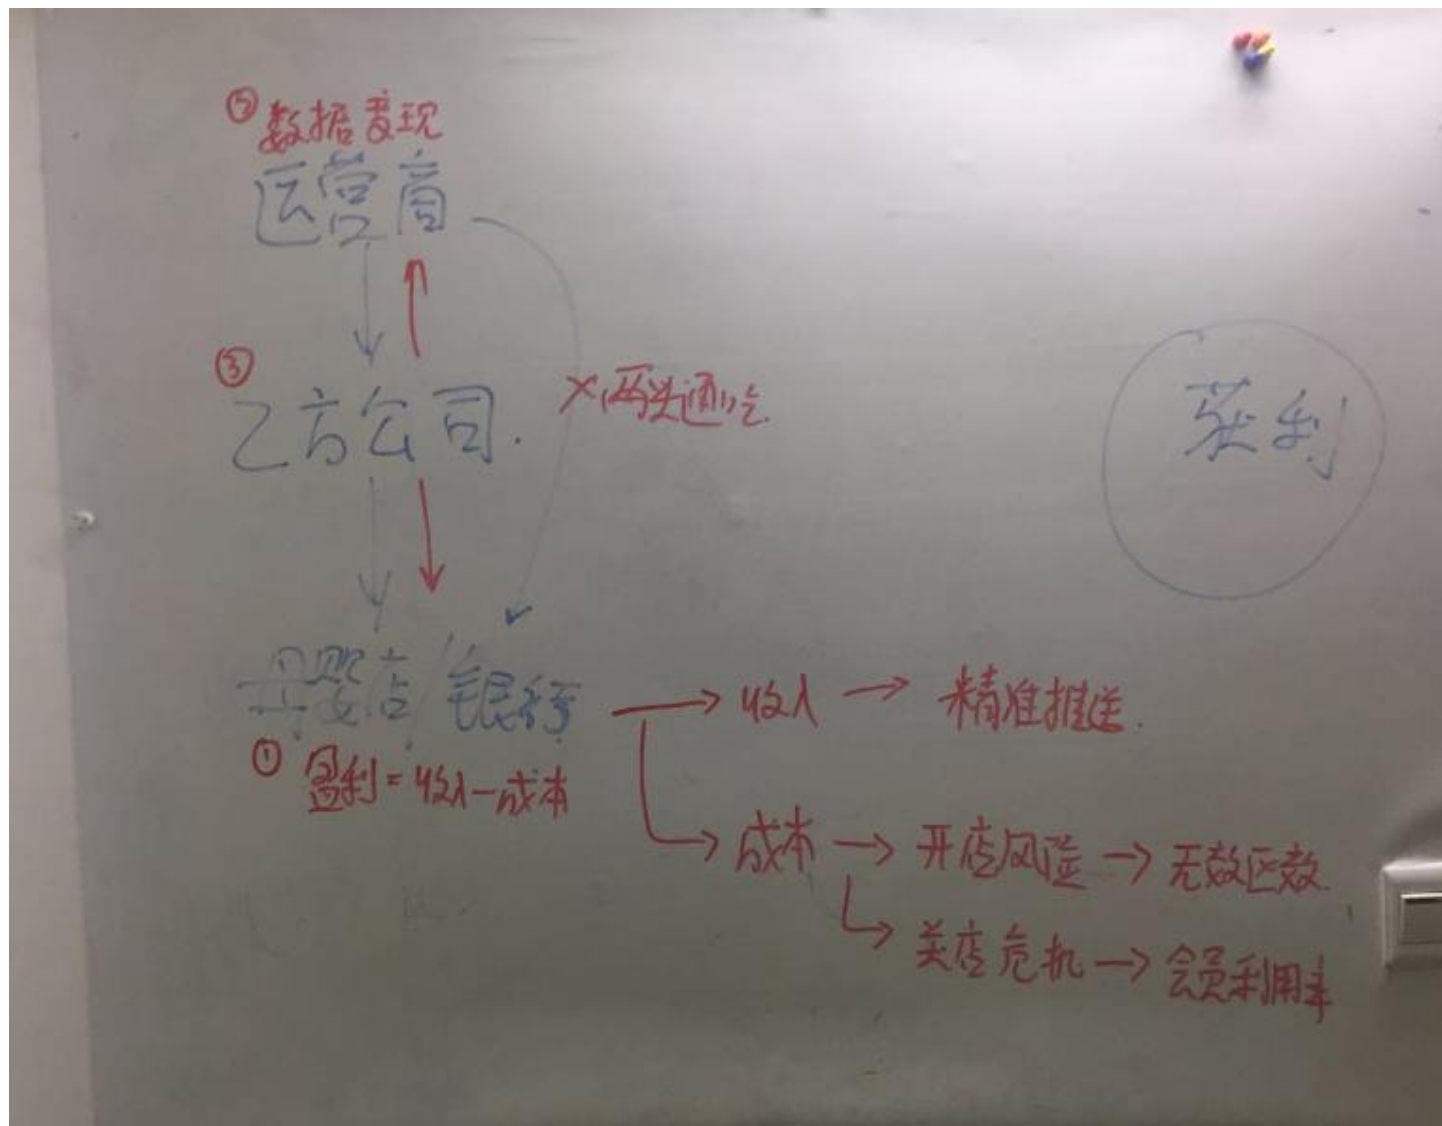 ② 数据变现
运营商
③
乙方公司.
×(两头通)吃.
获利
母婴店/银行
① 盈利=收入-成本
→ 收入 → 精准推送.
→ 成本 → 开店风险 → 无效区效.
→ 关店危机 → 会员利用率